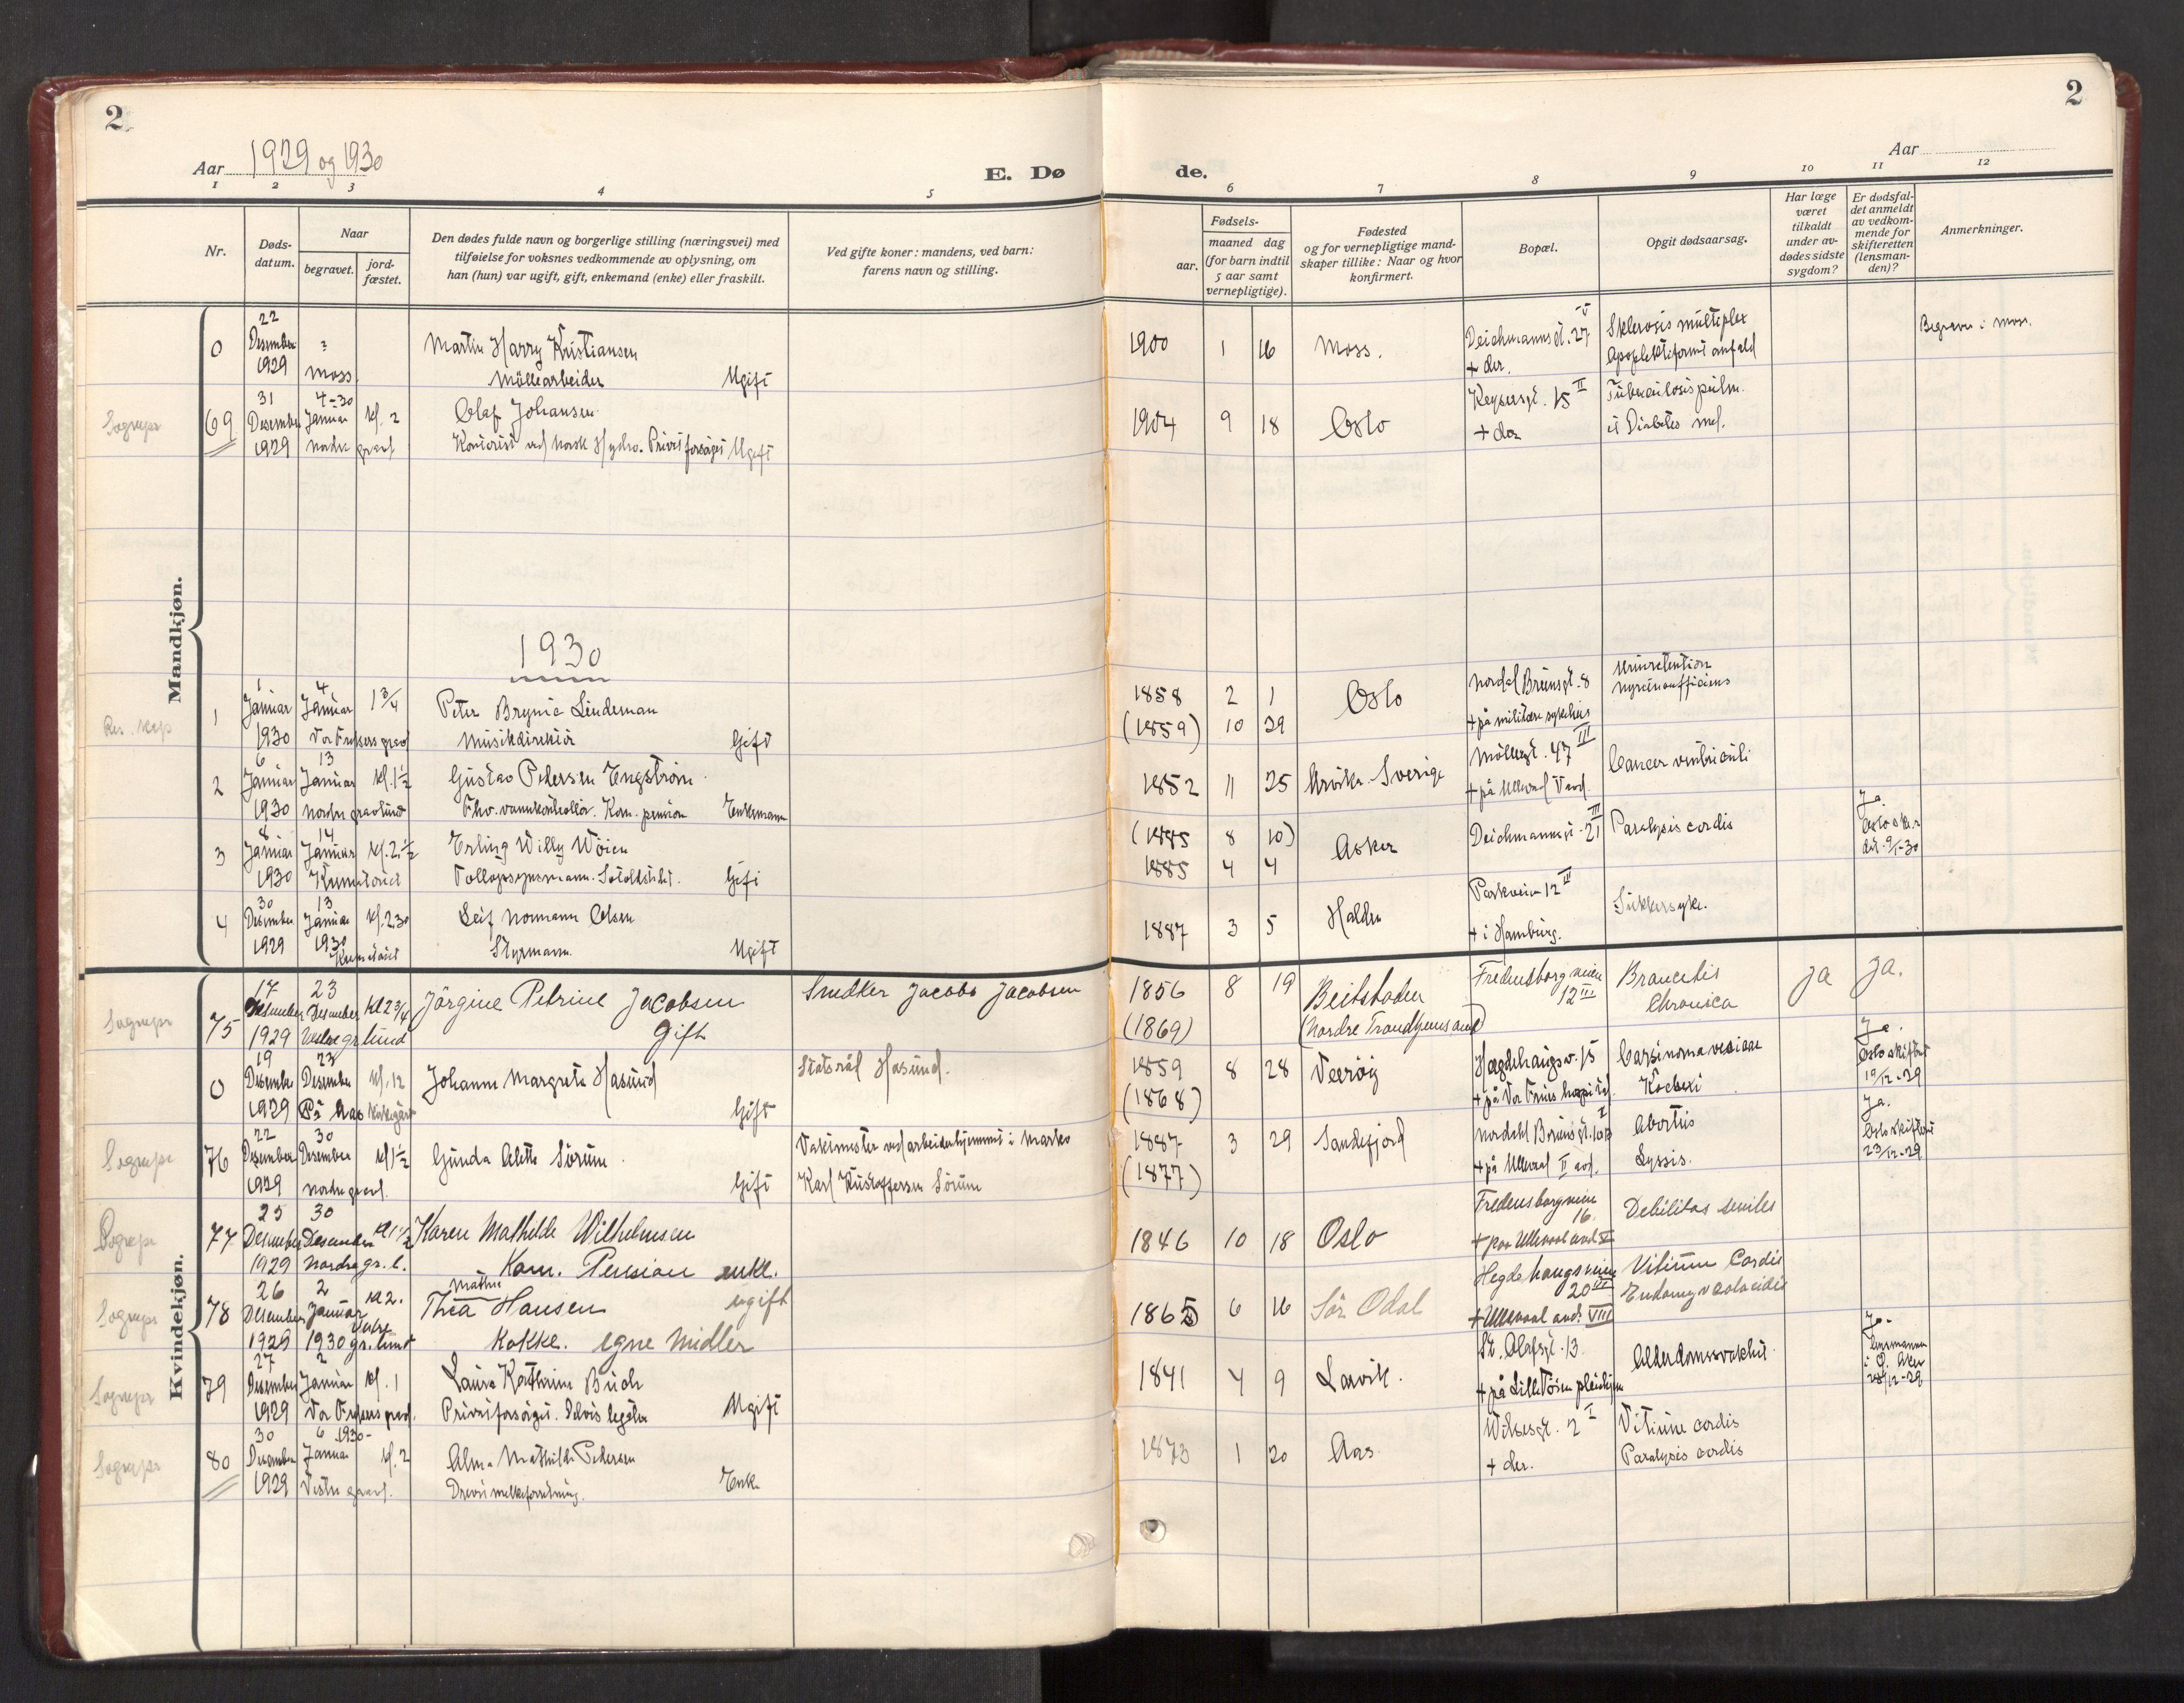 2
2
Aar 1929 og 1930
Aar
E. Dø
de.
1 2 3 4 5 6 7 8 9 10 11 12
Nr.
Døds-
datum.
Naar
begravet.
jord-
fæstet.
Den dødes fulde navn og borgerlige stilling (næringsvei) med
tilføielse for voksnes vedkommende av oplysning, om
han (hun) var ugift, gift, enkemand (enke) eller fraskilt.
Ved gifte koner: mandens, ved barn:
farens navn og stilling.
Fødsels-
aar.
maaned dag
(for barn indtil
5 aar samt
vernepligtige).
Fødested
og for vernepligtige mand-
skaper tillike: Naar og hvor
konfirmert.
Bopæl.
Opgit dødsaarsag.
Har læge
været
tilkaldt
under av-
dødes sidste
sygdom?
Er dødsfal-
det anmeldt
av vedkom-
mende for
skifteretten
(lensman-
den)?
Anmerkninger.
Mandkjøn.
0
22
Desember
1929
?
Moss
Martin Harry Kristiansen
Möllearbeider Ugift
1900 1 16
Moss.
Deichmannsgt. 27 V
+ der.
Sklerosis multiplex
Apoplektiformt anfald
Begravet i Moss.
Sognepr
69
31
Desember
1929
4-30
Januar kl. 2
Nordre gravl.
Olaf Johansen
Kontorist ved Norsk Hydro. Privat forsörget Ugift
1904 9 18
Oslo
Keysersgt. 15 II
+ der
Tuberculosis pulm.
et Diabetes mel.
1930
Res. kap
1
1
Januar
1930
4
Januar 1 3/4
Vor Frelsers gravl
Peter Brynie Lindeman
Musikdirektör Gift
1858 2 1
(1859) 10 29
Oslo
Nordal Brunsgt. 8
+ på militære sykehus
Urinretention
Nyreinsufficiens
2
6
Januar
1930
13
Januar kl. 1 1/2
Nordre gravlund
Gustav Petersen Engström.
Fhv. vannkontrollör. Kom. pension Enkemann
1852 11 25
Arvika. Sverige
Möllergt. 47 III
+ på Ullevål V avd.
Cancer ventriculi
3
8
Januar
1930
14
Januar kl. 2 1/2
Krematoriet
Erling Willy Wöien
Tollopsynsmann. Gift
(1885 8 10)
1885 4 4
Asker
Deichmannsgt. 21 III
Paralysis cordis
Ja.
Oslo sk.r
9/1-30
4
30
Desember
1929
13
Januar kl. 2.30
1930
Krematoriet
Leif Normann Olsen
Styrmann. Ugift
1887 3 5
Halden
Parkveien 12 III
+ i Hamburg.
Sukkersyke.
Kvindekjøn.
Sognepr
75
17
Desember
1929
23
Desember kl 2 3/4
Vestre gr lund
Jörgine Petrine Jacobsen
Gift
Snedker Jacobs Jacobsen
1856 8 19
(1869)
Beitstaden
(Nordre Trondhjems amt)
Fredensborgveien
12 III
Broncitis
Chronica
ja
ja.
0
19
Desember
1929
23
Desember kl. 12
På Aas kirkegård
Johanne Margrete Hasund
Gift
Statsråd Hasund.
1859 8 28
(1868)
Hægdehaugsv. 15
+ på Vor Frues hospital.
Carsinoma vesicae
Ja.
Oslo skifteret
19/12-29
Sognepr
76
22
Desember
1929
30
Desember kl 1 1/2
Nordre gravl.
Gunda Alette Sörum.
Gift
Vaktmester ved arbeiderhjemmet i
Karl Kristoffersen Sörum
1887 3 29
(1877)
Sandefjord
Nordahl Brunsgt. I
+ på Ullevål II avd.
Abortus
Ja.
Oslo skifteret
23/12-29
Sognepr
77
25
Desember
1929
30
Desember kl 1 1/2
Nordre gr. l.
Karen Mathilde Wilhelmsen
Kom. Pension enke.
1846 10 18
Oslo
Fredensborgveien
16.
+ paa Ullevaal avd V
Debilitas seniles
Sognepr
78
26
Desember
1929
2
Januar kl 2.
1930 Vestre gr. lund
Mathea
Thea Hansen ugift
Kokke. egne Midler
1865 6 16
Sör Odal
Hegdehaugsveien
20 III
+ Ullevaal avd: VIII
Vitium Cordis
Sognepr
79
27
Desember
1929
2
Januar kl. 1
Vor Frelsers gravl.
Laura Kathrine Buch
Privat forsörget. Delvis legater Ugift
1841 4 9
Larvik.
St. Olafsgt. 13.
+ på Lille Töien pleiehjem
Alderdomssvakhet.
Ja-
Lensmannen
i Ö. Aker
28/12-29
Sognepr
80
30
Desember
1929
6 1930-
Januar kl. 2
Vestre gravl.
Alma Mathilde Pedersen
Drevet melkeforretning. Enke
1873 1 20
Aas.
Wilsesgt. 2 I
+ der.
Vitium cordis
Paralysis cordis